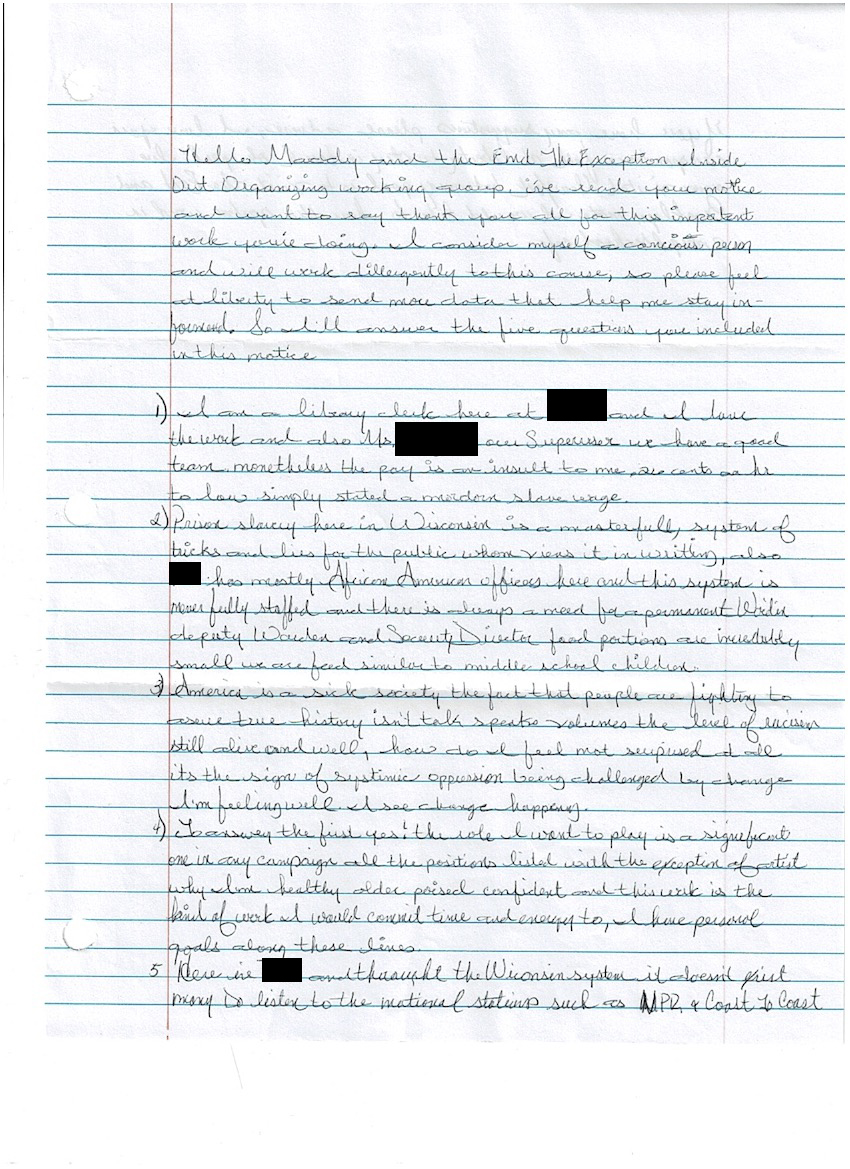 Hello Maddy and the End The Exception Inside
Out Organizing working group, i've read your notice
and want to say thank you all for this impotent
work you're doing. I consider myself a concious person
and will work dillergently to this cause, so please feel
at liberty to send more data that help me stay in-
formend. So I'll answer the five questions you included
in this notice
1) I am a library clerk here at and I love
the work and also Ms. our Superviser we have a good
team. monetheless the pay is an insult to me, cents an hr
to low simply stated a mordorn slave wage.
2) Prison slavery here in Wisconsin is a masterfull, system of
tricks and lies for the public whom views it in writing, also
has mostly African American officers here and this system is
never fully staffed and there is always a need for a permanent Warden
deputy Warden and Security Director food portions are increditbly
small we are feed similar to middle school children.
3) America is a sick society the fact that people are fighting to
true history isn't talk speaks volumes the level of racism
still alive and well, how do I feel not surpused at all
its the sign of systimic oppression being challenged by change
I'm feeling well. I see change happeng.
4) To answey the first yes! the role I want to play is a significant
one in any campaign all the positions listed with the exception of artist
why I'm healthy older poised confident and this work is the
kind of work I would commit time and energy to, I have personal
goals along these lines.
5 Here in and thruought the Wiconsin system it doesn't exist
many Do listen to the national stations such as NPR & Coast to Coast